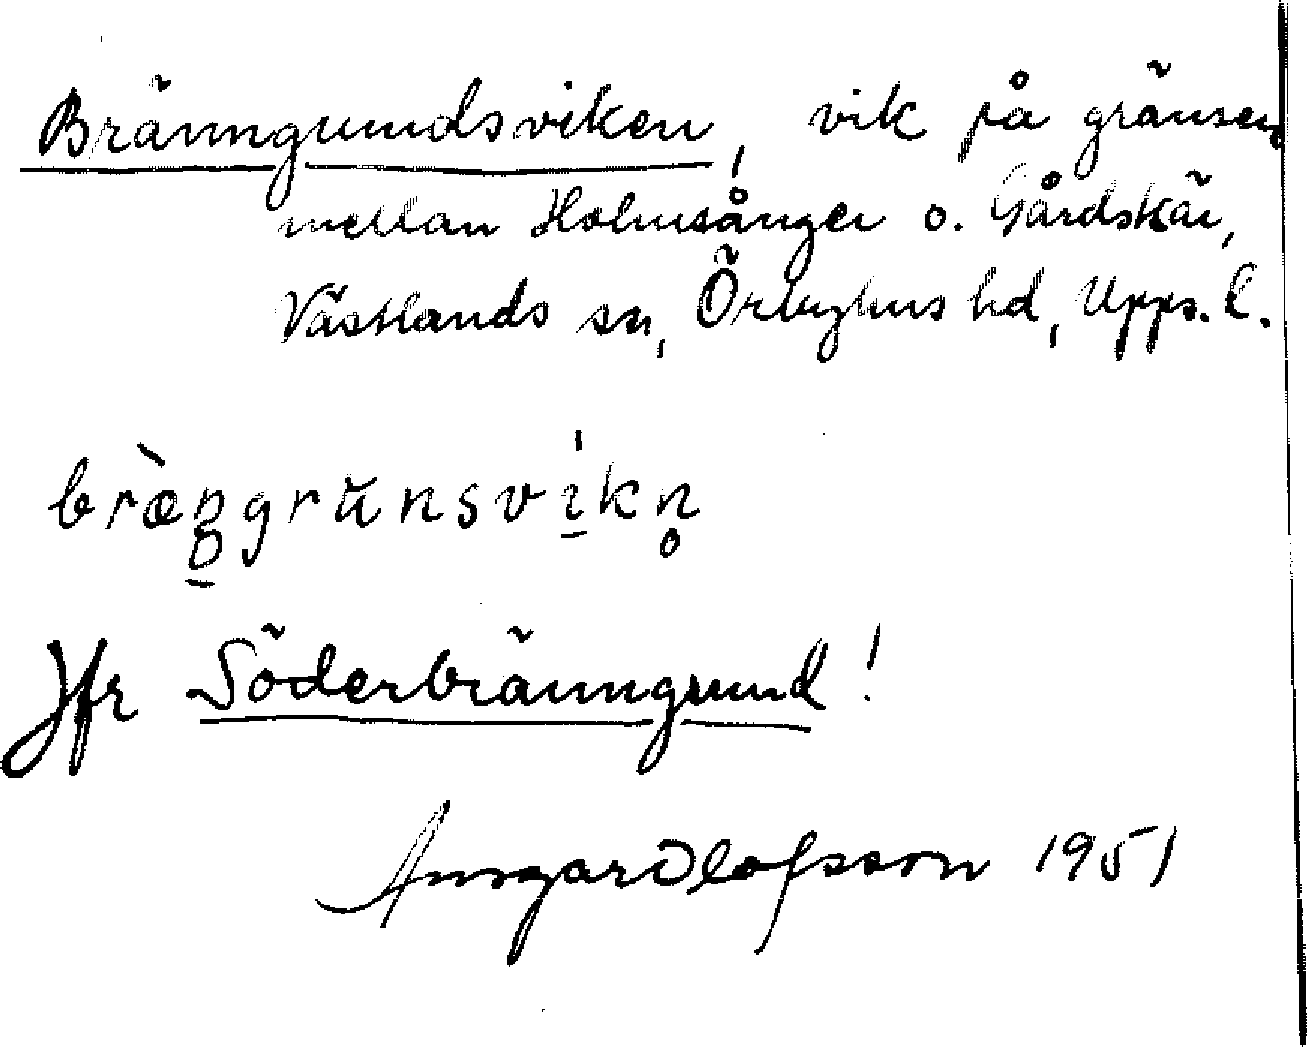 Bränngrundsviken, vik på gränsen
mellan Holmsånger o. Gårdskär,
Västlands sn, Örbyhus hd, Upps. l.
Jfr Söderbränngrund!
Ansgar Olofsson 1951